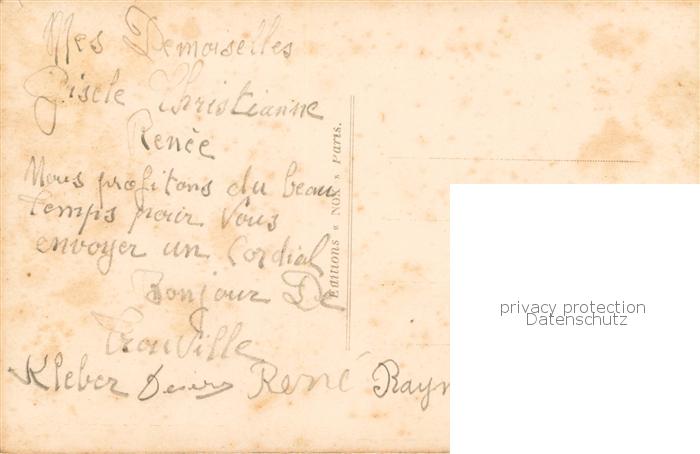 Mes Demoiselles
Gisele Christianne
Renée
Nous profitons du beau
temps pour Vous
envoyer un Cordial
Bonjour De
Trouville
Kleber René Raym
Editions « NOX » Paris.
privacy protection
Datenschutz